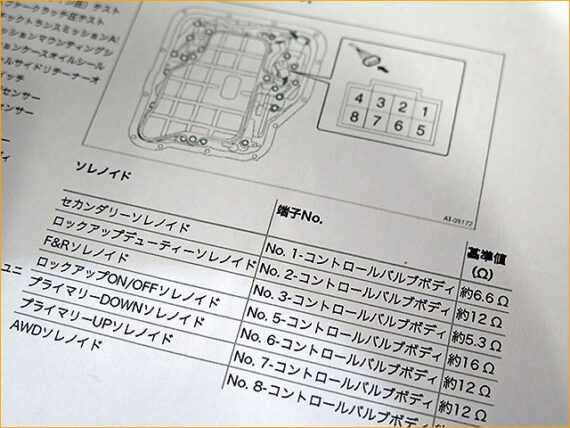 圧)テスト
クラッチ圧テスト
ックトランスミッションA:
ッションマウンティングシ
ョンケースオイルシール
ルサイドリテーナーオ
イッチ
センサー
センサー
ー
ディ
ユニ
4 3 2 1
8 7 6 5
AI-05172
ソレノイド 端子No. 基準値
(Ω)
セカンダリーソレノイド No. 1-コントロールバルブボディ 約6.6 Ω
ロックアップデューティーソレノイド No. 2-コントロールバルブボディ 約12 Ω
F&Rソレノイド No. 3-コントロールバルブボディ 約5.3 Ω
ロックアップON/OFFソレノイド No. 5-コントロールバルブボディ 約16 Ω
プライマリーDOWNソレノイド No. 6-コントロールバルブボディ 約12 Ω
プライマリーUPソレノイド No. 7-コントロールバルブボディ 約12 Ω
AWDソレノイド No. 8-コントロールバルブボディ